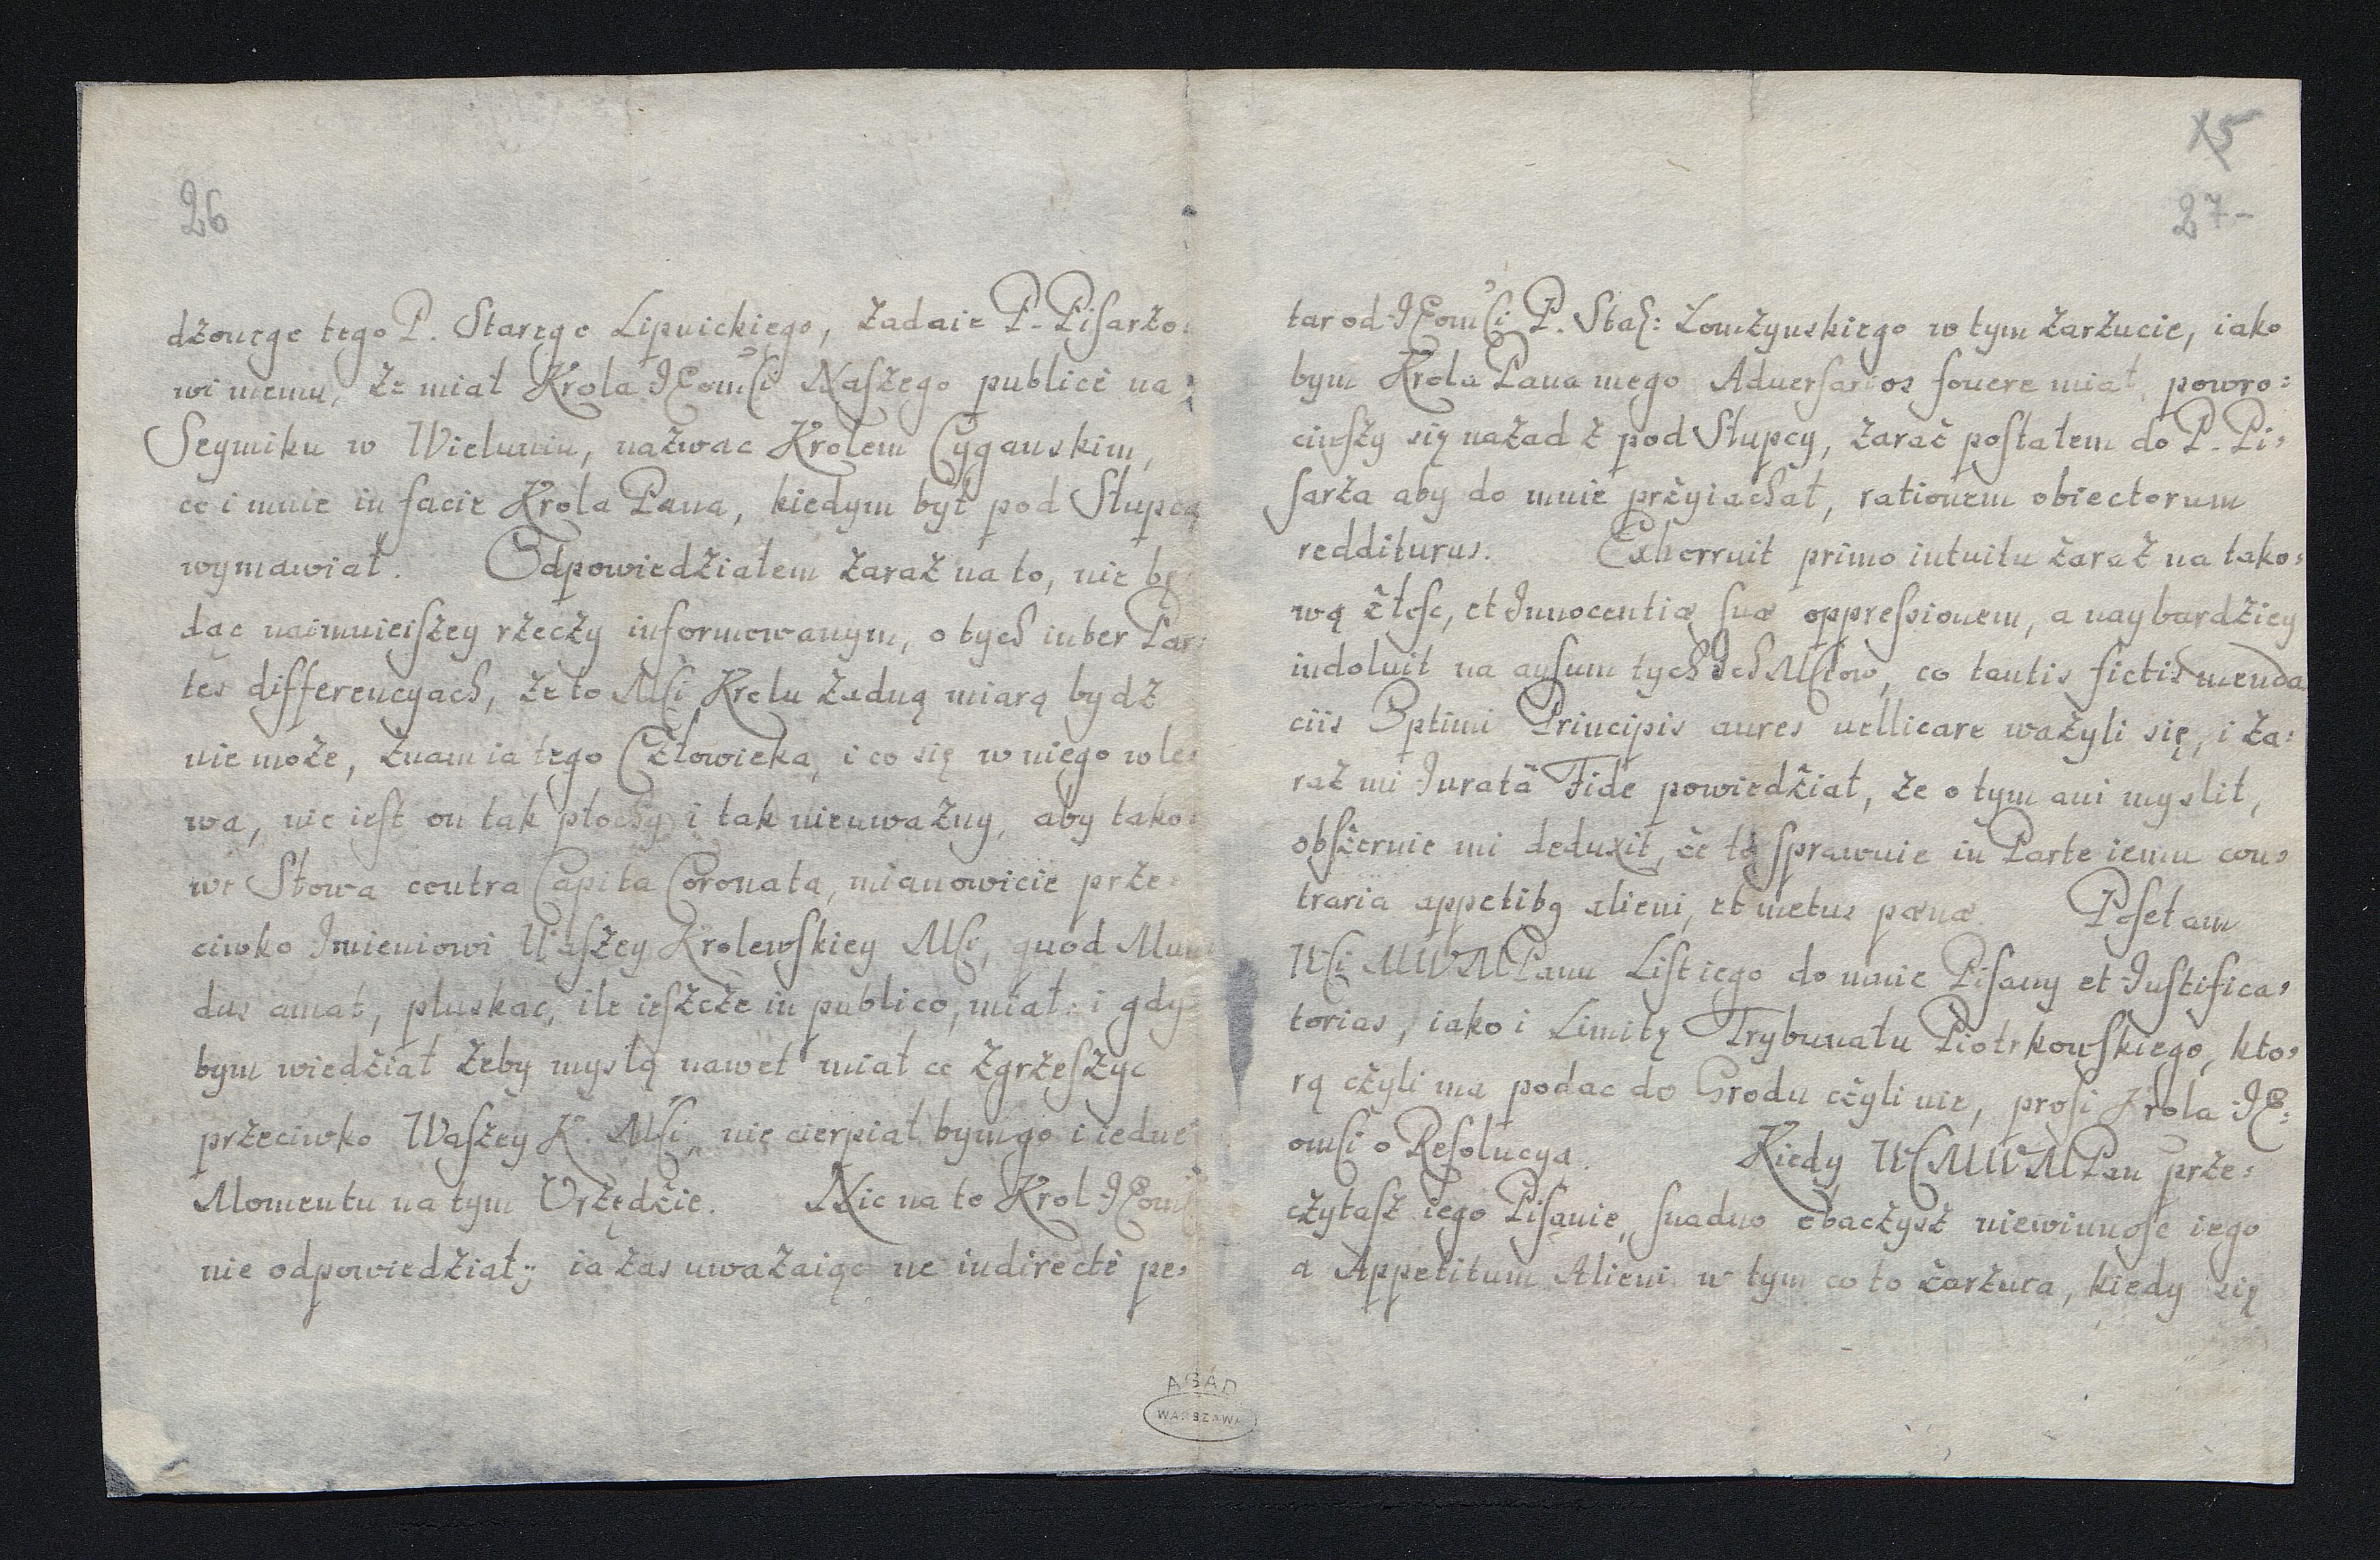 26
dzonego tego P. Starego Lipnickiego, żadaie P. Pisarzo:
wi memu, że miał Krola JEomsci Naszego publicè na
Seymiku w Wieluniu, nazwac Krolem Cyganskim,
co i mnie in facie Krola Pana, kiedym był pod Słupcą
wymawiał. Odpowiedziałem zaraz na to, nie bę
dąc naimnieiszey rzeczy informowanym, o bych inter Par
tes differencyach, że to Msci Krolu żadną miarą bydz
nie może, znam ia tego Człowieka, i co się w niego wle:
wa, nie iest on tak płochy i tak nieuważny, aby tako:
we Słowa contra Capita Coronata, mianowicie prze:
ciwko Imieniowi Waszey Krolewskiey Msci, quod Mun
dus amat, pluskac, ile ieszcze in publico, miał: i gdy
bym wiedział żeby myslą nawet miał co zgrzeszyc
przeciwko Waszey K. Msci, nie cierpiał bym go i iedne
Momentu na tym Vrzędzie. Nic na to Krol JEomsc
nie odpowiedział; ia zas uważaiąc ne indirectè pe:
X5
27-
tar od JEomsci P. Stas: Łomzynskiego w tym zarzucie, iako
bym Krola Pana mego Aduersarios fouere miał, powro:
ciwszy się nazad z pod Słupcy, zaraz posłałem do P. Pi:
sarza aby do mnie przyiachał, rationem obiectorum
redditurus. Exhorruit primo intuitu zaraz na tako:
wą złosc, et Innocentiæ suæ oppressionem, a naybardziey
indoluit na ausum tych Ich Mściow, co tantis fictis menda
ciis Optimi Principis aures uellicare ważyli się, i za:
raz mi Iuratâ Fide powiedział, że o tym ani myslił,
obszernie mi deduxit, że tę sprawnie in Parte iemu con:
traria appetitq alieni, et metus pænæ. Posełam
WSci MWMPanu List iego do mnie Pisany et Iustifica:
torias, iako i Limitę Trybunału Piotrkowskiego, kto:
rą czyli ma podac do Grodu czyli nie, prosi Krola JE:
omsci o Resolucyą. Kiedy WSMWMPan prze:
czytasz iego Pisanie, snadno obaczysz niewinnosc iego
a Appetitum Alieni w tym co to zarzuca, kiedy się
AGAD
WARSZAWA